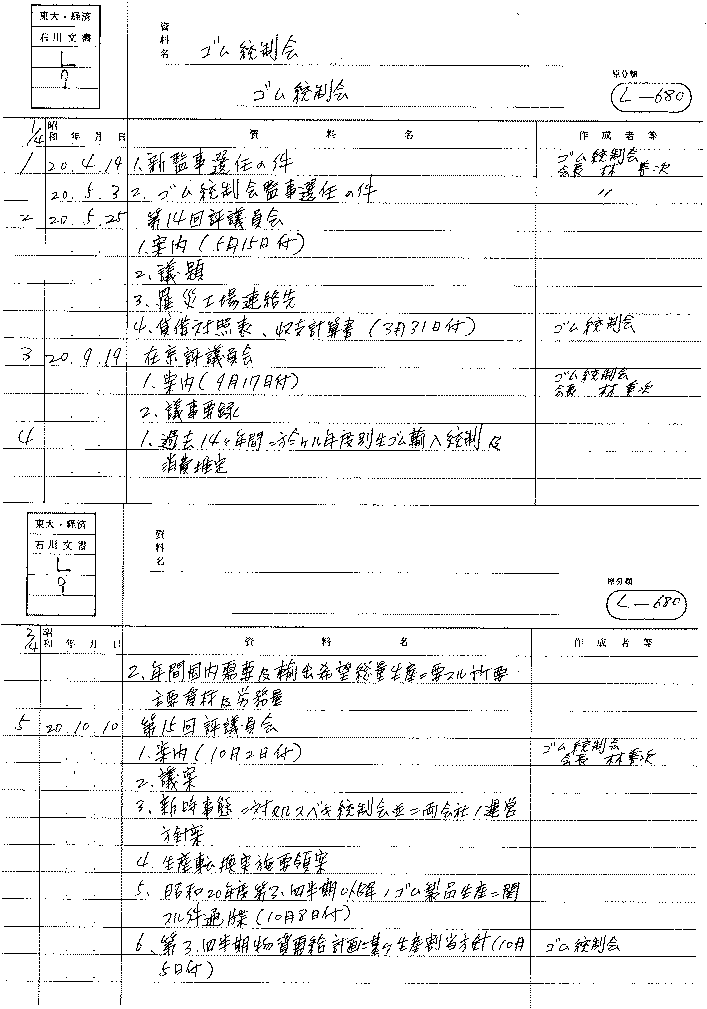 東大・経済
石川文書
L
9
資料名
ゴム統制会
ゴム統制会
原分類
L-680
1/4 昭和 年 月 日 資料名 作成者等
1 20.4.19 1.新監事選任の件 ゴム統制会
会長 林
20.5.3 2.ゴム統制会監事選任の件 〃
2 20.5.25 第14回評議員会
1.案内(5月15日付)
2.議題
3.罹災工場連絡先
4.貸借対照表、収支計算書(3月31日付) ゴム統制会
3 20.9.19 在京評議員会
1.案内(9月17日付) ゴム統制会
会長 林
2.議事要録
4 1.過去14ヶ年間ニ於ケル年度別生ゴム輸入統制及
消費推定
東大・経済
石川文書
L
9
資料名
原分類
L-680
昭和 年 月 日 資料名 作成者等
2.年間国内需要及輸出希望総量生産ニ要スル所要
主要資材及労務量
5 20.10.10 第15回評議員会
1.案内(10月2日付) ゴム統制会
会長 林
2.議案
3.新時事態ニ対スベキ統制会並ニ両会社ノ運営
方針案
4.生産転換実施要領案
5.昭和20年度第3.四半期以降ノゴム製品生産ニ関
スル件通牒(10月8日付)
6.第3.四半期物資需給計画ニ基ク生産割当方針(10月 ゴム統制会
5日付)